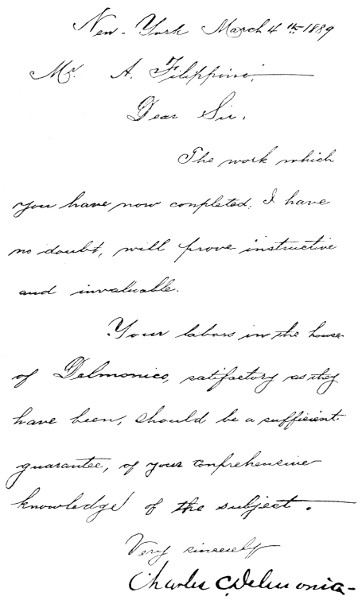 New-York March 4th 1889
Mr. A. Filippini.
Dear Sir.
The work which
you have now completed, I have
no doubt, will prove instructive
and invaluable.
Your labors in the house
of Delmonico, satisfactory as they
have been, should be a sufficient
guarantee, of your comprehensive
knowledge of the subject.
Very sincerely
Charles C. Delmonico